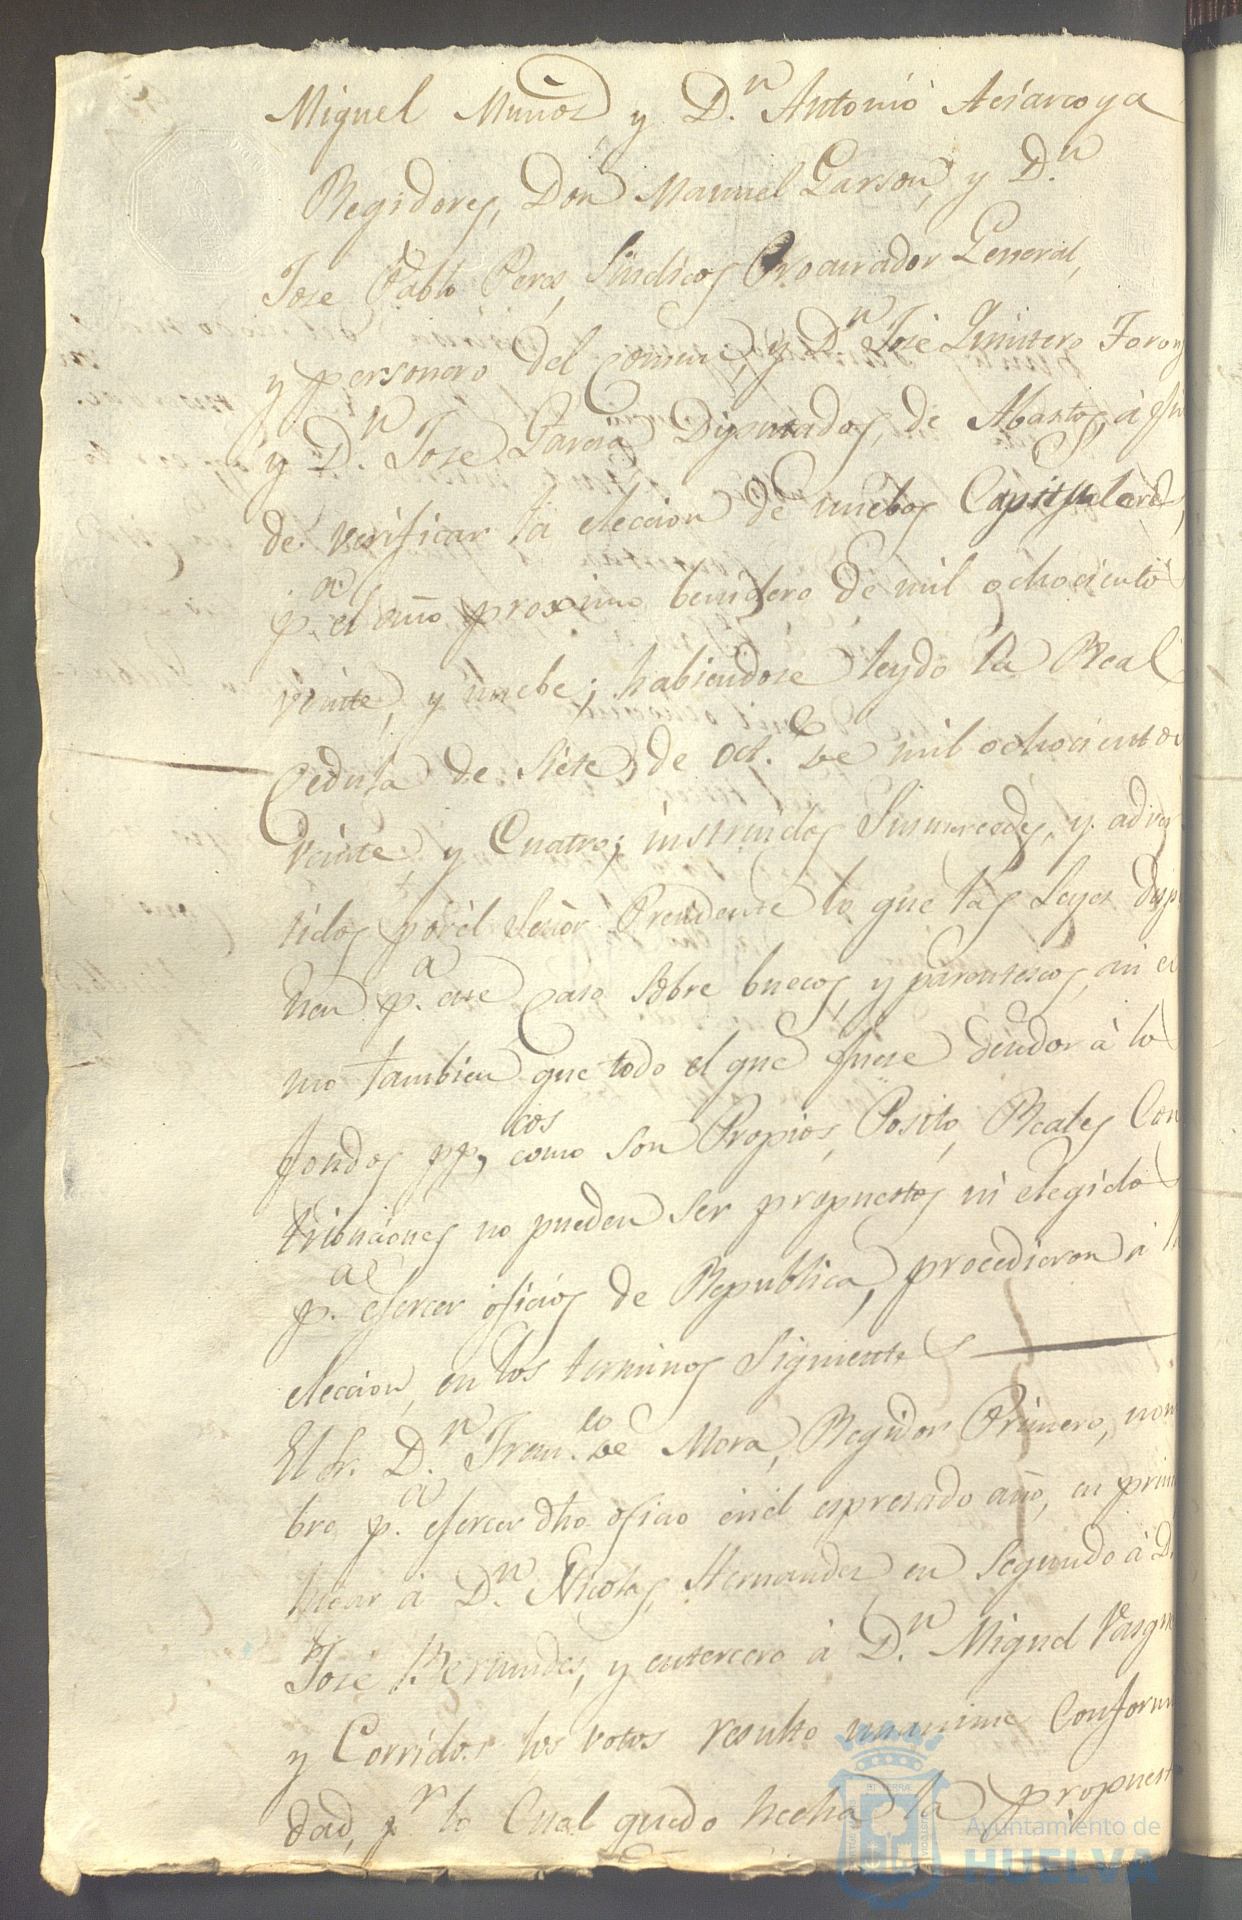 Miguel Muñoz y D.n Antonio Aciarcoya
Regidores, Don Manuel Garson, y D.n
Jose Pablo Peres, Sindicos Procurador General,
y personero del Comun, y D.n José Quintero Toron
y D.n Jose Garcia Diputados, de Abastos, à fin
de verificar la eleccion de nuebos Capitulares,
p.a el año proximo benidero de mil ochociento
veinte, y nuebe; habiendose leydo la Real
Cedula de Siete, de Oct.e de mil ochocientos
veinte y Cuatro; instruidos Sus mercedes, y adver
tidos por el señor Precidente lo que las Leyes dispo
nen p.a este Caso sobre huecos, y parentescos, asi co
mo tambien que todo el que fuese deudor à lo
fondos pp,cos como son Propios, Posito, Reales Con
tribuciones no pueden ser propuestos ni elegido
p.a esercer oficios de Republica, procedieron à la
eleccion, en los terminos Siguientes
El Sr. D.n Fran.co de Mora, Regidor Primero, nom
bro p.a esercer dho oficio en el espresado año, en prim
lugar à D.n Nicolas Hernandez en Segundo à D.
José Bermudes, y en tercero à D.n Miguel Vasque
y Corridos los votos resulto unanime Conformi
dad, p.r lo Cual quedo hecha la propuest
Ayuntamiento de
HUELVA